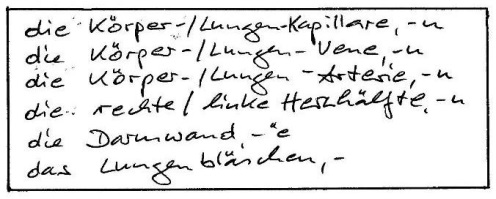 die Körper-/Lungen-Kapillare, -n
die Körper-/Lungen-Vene, -n
die Körper-/Lungen-Arterie, -n
die rechte/linke Herzhälfte, -n
die Darmwand, -¨e
das Lungenbläschen, -